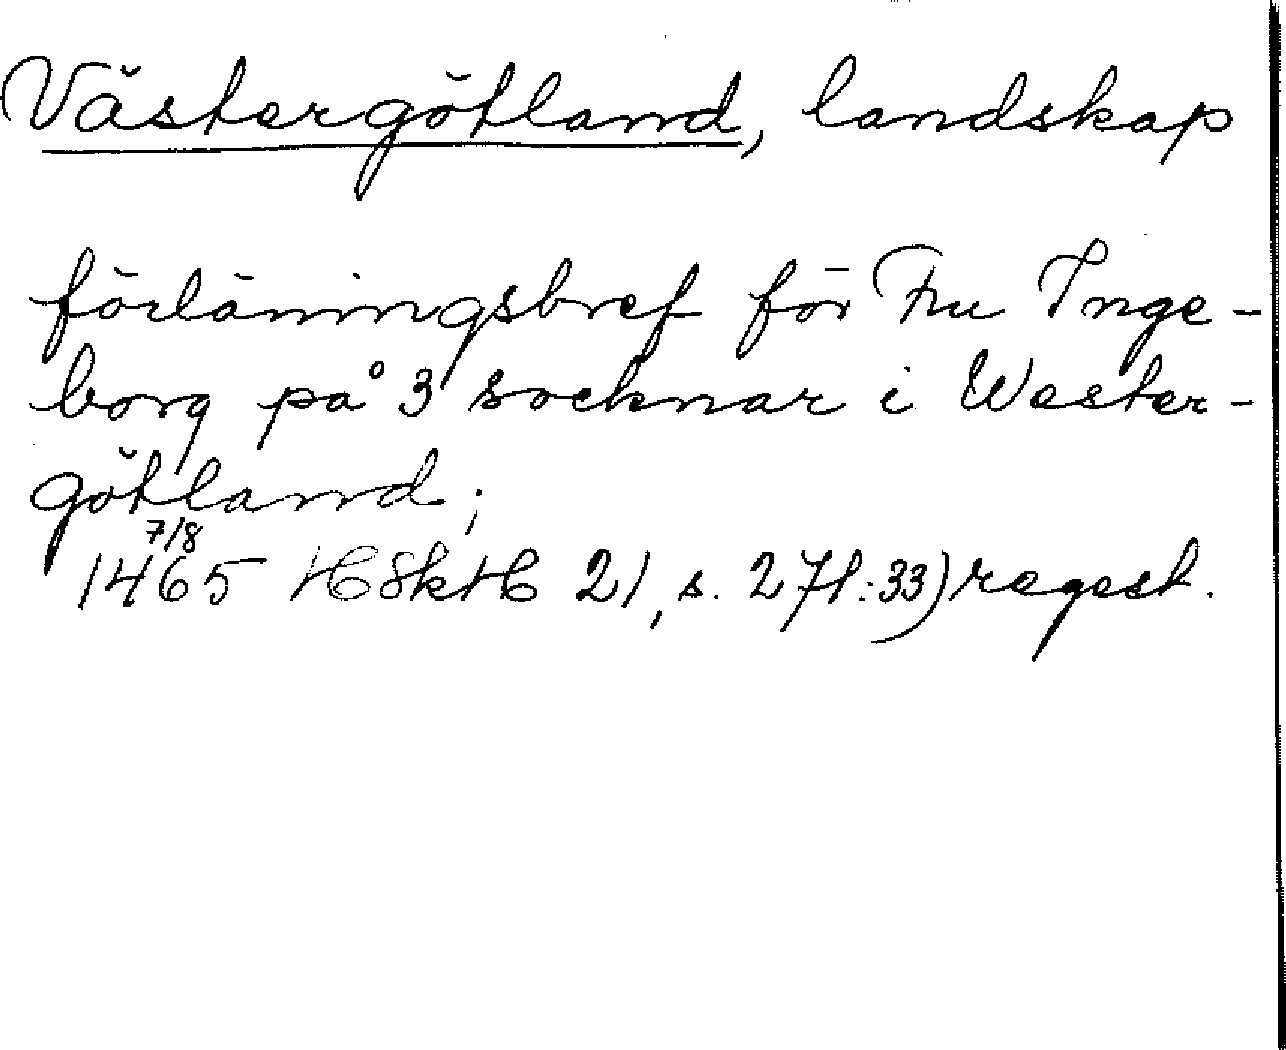 Västergötland, landskap
förläningsbref för Fru Inge-
borg på 3 socknar i Wester-
götland;
7/8
1465 HSkH 21, s. 27f:33) regest.